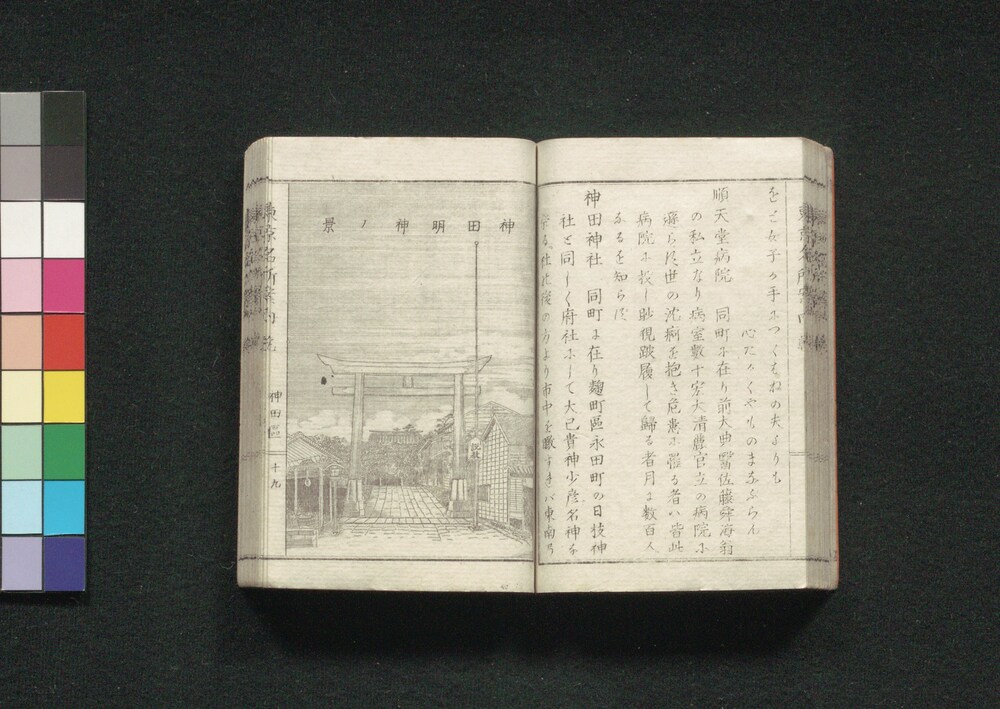 をと女子の手につくはねの夫よりも
心たかくやものまなふらん
順天堂病院 同町に在り前大典醫佐藤舜海翁
の私立なり病室數十宏大清麗官立の病院に
讓らす世の沈痾を抱き危患に罹る者ハ皆此
病院に投し眇視跛履して歸る者月に數百人
なるを知らす
神田神社 同町に在り麹町區永田町の日枝神
社と同しく府社にして大己貴神少彦名神を
祭る社は後の方より市中を瞰すれバ東南の
神田明神ノ景
東京名所案内
神田區
十九